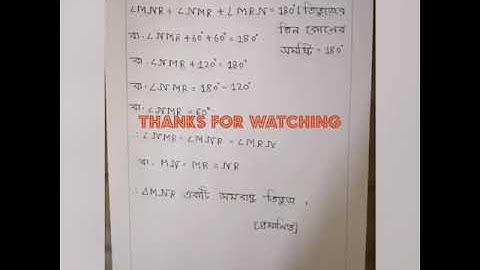 ∠MNR + ∠NMR + ∠MRN = 180° [ত্রিভুজের
তিন কোনের
সমষ্টি = 180°
বা. ∠NMR + 60° + 60° = 180°
বা. ∠NMR + 120° = 180°
বা. ∠NMR = 180° - 120°
বা. ∠NMR = 60°
THANKS FOR WATCHING
∴ ∠NMR = ∠MNR = ∠MRN
বা. MN = MR = NR
∴ ΔMNR একটি সমবাহু ত্রিভুজ ।
[প্রমানিত]